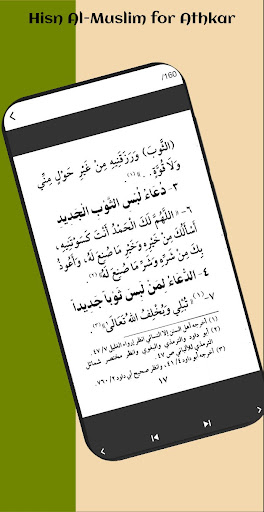 Hisn Al-Muslim for Athkar
/160
(الثَّوبَ) وَرَزَقَنِيهِ مِنْ غَيْرِ حَوْلٍ مِنِّي
وَلَا قُوَّةٍ...» (١)
٣- دُعَاءُ لُبْسِ الثَّوبِ الْجَدِيدِ
٦- «اللَّهُمَّ لَكَ الْحَمْدُ أَنْتَ كَسَوْتَنِيهِ،
أَسْأَلُكَ مِنْ خَيْرِهِ وَخَيْرِ مَا صُنِعَ لَهُ، وَأَعُوذُ
بِكَ مِنْ شَرِّهِ وَشَرِّ مَا صُنِعَ لَهُ» (٢)
٤- الدُّعَاءُ لِمَنْ لَبِسَ ثَوْباً جَدِيداً
٧-(١) «تُبْلِي وَيُخْلِفُ اللهُ تَعَالَى» (٣)
(١) أخرجه أهل السنن إلا النسائي انظر إرواء الغليل ٤٧/٧.
(٢) أبو داود والترمذي والبغوي وانظر مختصر شمائل
الترمذي للألباني ص ٤٧.
(٣) أخرجه أبو داود ٤١/٤ وانظر صحيح أبي داود ٧٦٠/٢.
١٧